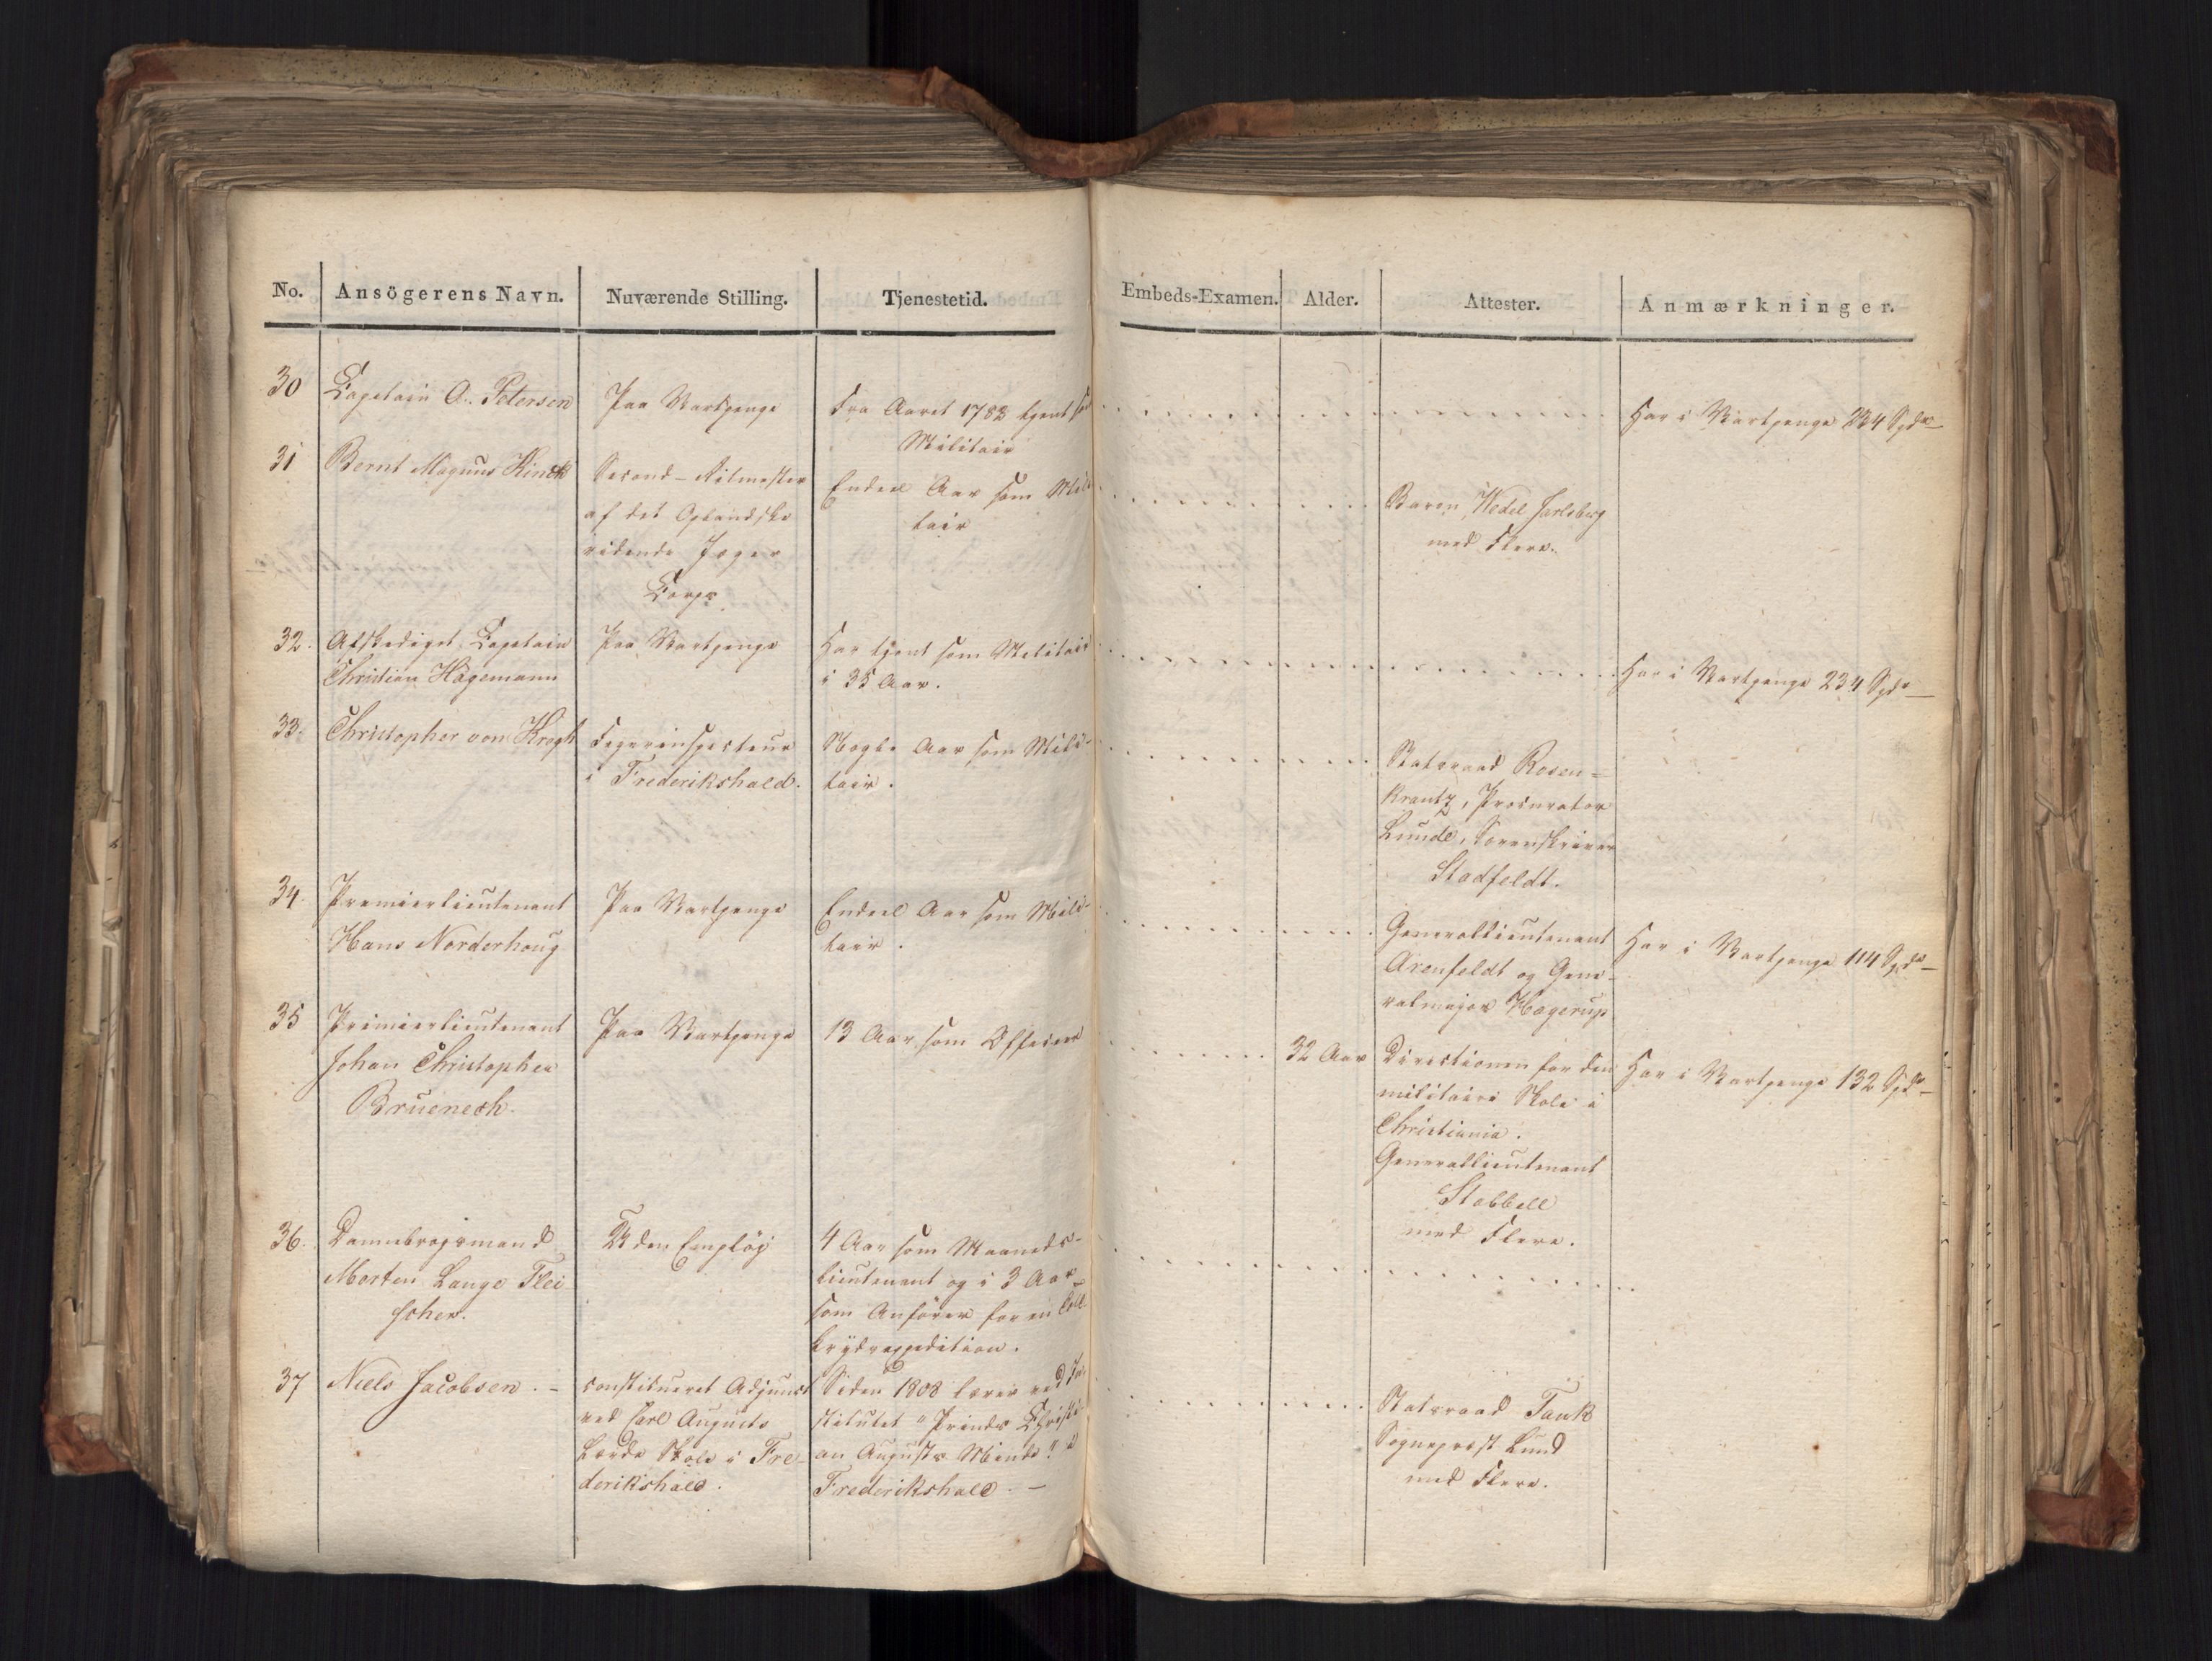 No. Ansögerens Navn. Nuværende Stilling. Tjenestetid. Embeds-Examen. Alder. Attester. Anmærkninger.
30 Capitain O. Petersen
Paa Vartpenge
Fra Aaret 1782 tjent som
Militair
Har i Vartpenge 234 Spd
31 Bernt Magnus Kinck
Second-Ritmester
af det Oplandske
ridende Jæger
Corps
Endeel Aar som Mili
tair
Baron Wedel Jarlsberg
med Flere.
32. Afskediget Capitain
Christian Hagemann
Paa Vartpenge
Har tjent som Militair
i 35 Aar.
Har i Vartpenge 234 Spd
33. Christopher von Krogh
Byeinspecteur
i Frederikshald.
Nogle Aar som Mili-
tair.
Statsraad Rosen=
krantz, Procurator
Lunde, Sorenskriver
Stadfeldt.
34. Premierlieutenant
Hans Norderhoug
Paa Vartpenge
Endeel Aar som Mili-
tair.
Generallieutenant
Arenfeldt og Gene-
ralmajor Hagerup
Har i Vartpenge 114 Spd
35 Primierlieutenant
Johan Christopher
Bruenech.
Paa Vartpenge
13 Aar som Officeer
32 Aar
Directionen for den
militaire Skole i
Christiania.
Generallieutenant
Stabbell
med Flere.
Har i Vartpenge 132 Spd
36. Dannebrogsmand
Morten Lange Flei
scher.
Uden Emploÿ
4 Aar som Maaneds-
lieutenant og i 3 Aar
som Anförer for en
krydsexpedition.
37 Niels Jacobsen. -
constitueret Adjunct
ved Carl Augusts
Lærde Skole i Fre-
derikshald.
Siden 1808 lærer ved In-
stitutet "Prinds Christi
an Augusts Minde" i
Frederikshald. -
Statsraad Tank
Sognepræst Lund
med Flere.